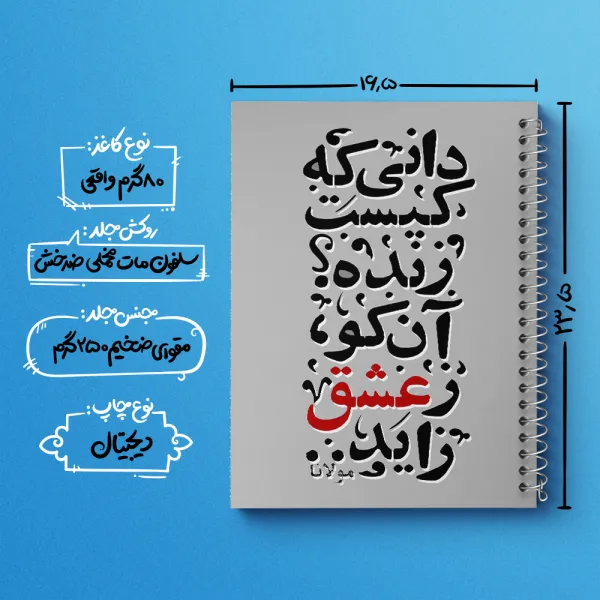 ۱۶٫۵
۲۳٫۵
دانی که
کیست
زنده؟
آن کو،
ز عشق
زاید..
مولانا
نوع کاغذ:
۸۰ گرم وافقی
روکش جلد:
سلفون مات مخملی ضدخش
جنس جلد:
مقوای ضخیم ۲۵۰ گرم
نوع چاپ:
دیجیتال